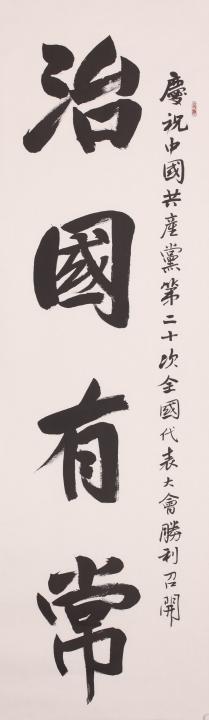 慶祝中國共産黨第二十次全國代表大會勝利召開
治國有常